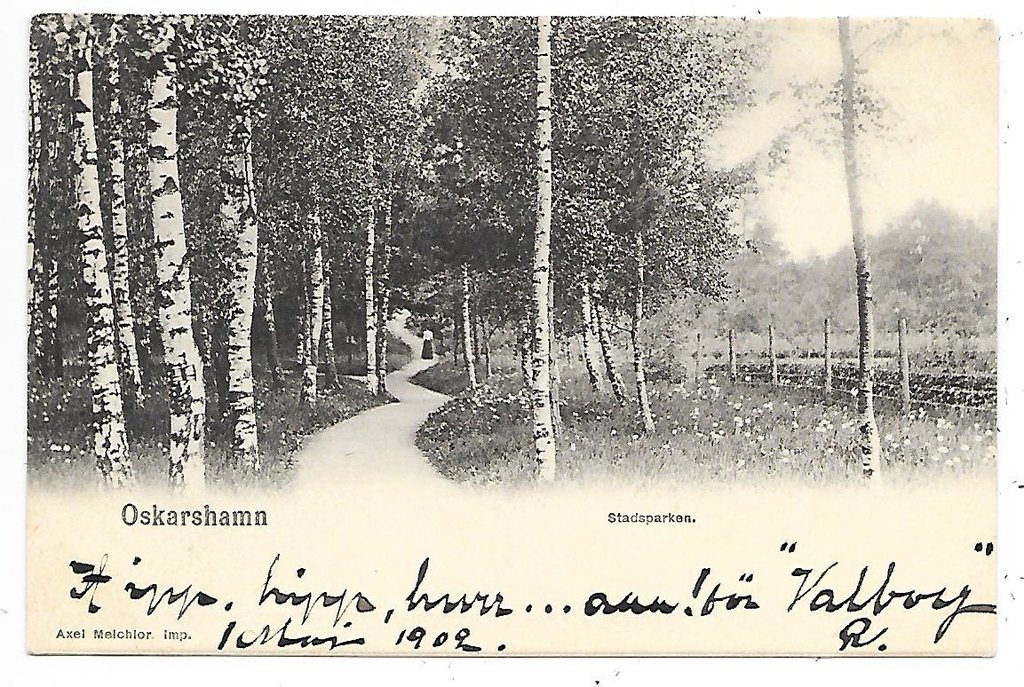 Oskarshamn
Stadsparken.
Hipp, hipp, hurr... aaa! för "Valborg"
Axel Melchior. imp.
1 Maj 1902.
R.